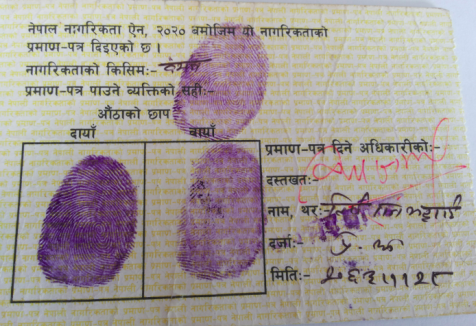 नेपाल नागरिकता ऐन, २०२० बमोजिम यो नागरिकताको
प्रमाण-पत्र दिइएको छ ।
नागरिकताको किसिम:- वंशज
प्रमाण-पत्र पाउने व्यक्तिको सही:-
औंठाको छाप
दायाँ बायाँ
प्रमाण-पत्र दिने अधिकारीको:-
दस्तखत:-
नाम, थर:-
दर्जा:- प्र. अ
मिति:- २०६३।११२८